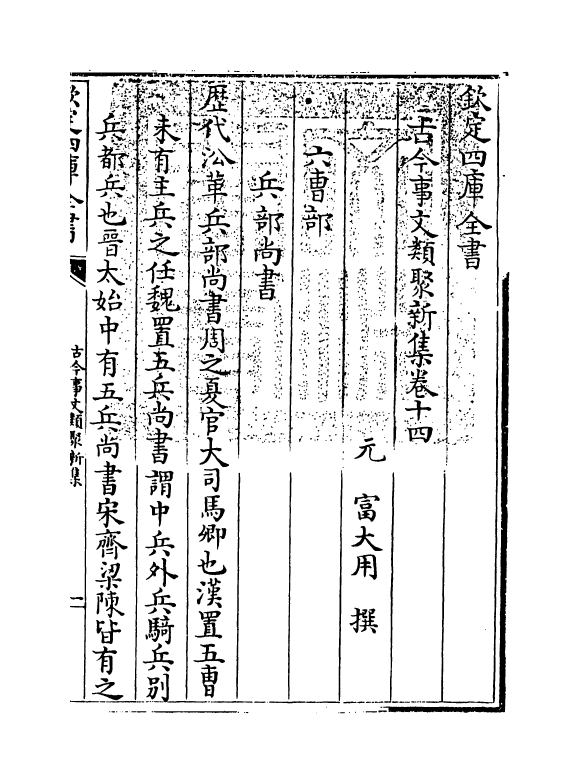 欽定四庫全書
古今事文類聚新集卷十四
元 富大用 撰
六曹部
兵部尚書
歴代沿革兵部尚書周之夏官大司馬卿也漢置五曹
未有主兵之任魏置五兵尚書謂中兵外兵騎兵别
兵都兵也晉太始中有五兵尚書宋齊梁陳皆有之
欽定四庫全書
古今事文類聚新集
一